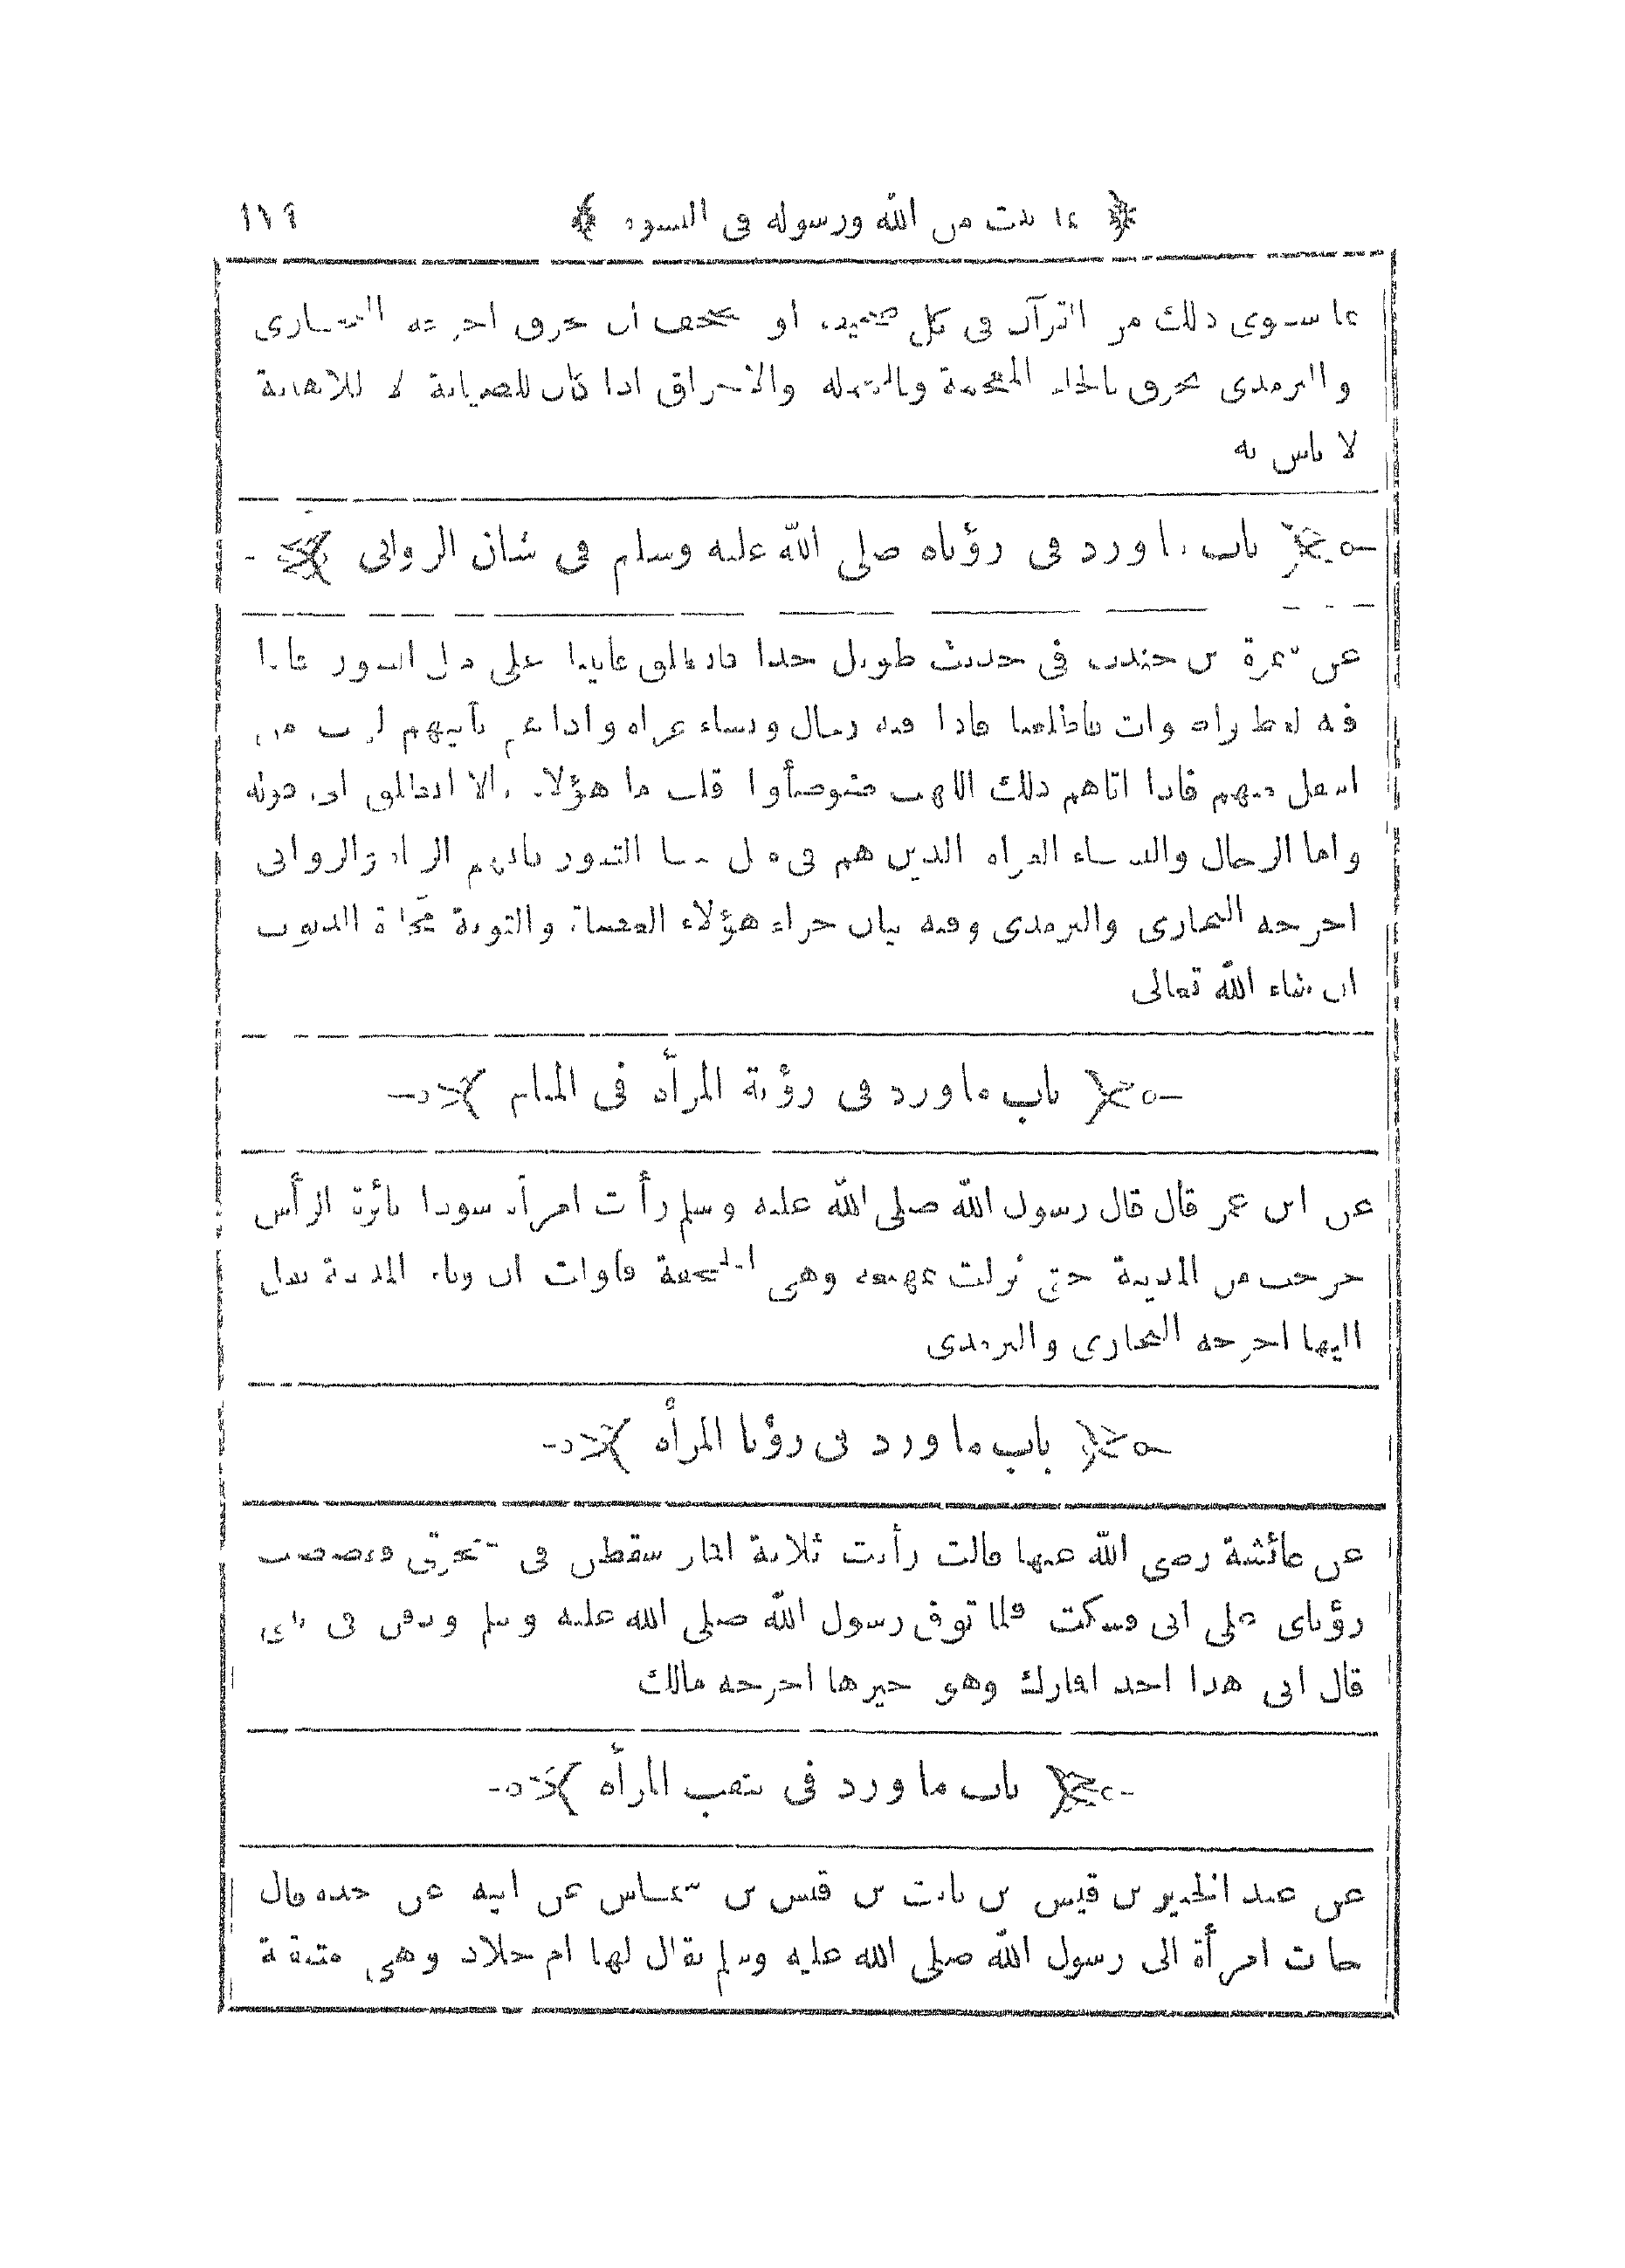 ﴿ ما ثبت من الله ورسوله فى النسوة ﴾ ١٦٩
بما سوى ذلك من القرآن فى كل صحيفة او مصحف ان يحرق اخرجه البخارى
والترمذى يحرق بالحاء المهملة والاحراق اذا كان للصيانة لا للاهانة
لا باس به
باب ما ورد فى رؤياه صلى الله عليه وسلم فى شان الزوانى
عن سمرة بن جندب فى حديث طويل جدا فانطلق فاتينا على مثل التنور فاذا
فيه لغط واصوات فاطلعنا فاذا فيه رجال ونساء عراة واذا هم يأتيهم لهب من
اسفل منهم فاذا اتاهم ذلك اللهب ضوضأوا قلت ما هؤلاء قالا انطلق
واما الرجال والنساء العراة الذين هم فى مثل بناء التنور فانهم الزناة والزوانى
اخرجه البخارى والترمذى وفيه بيان جزاء هؤلاء العصاة والتوبة محاءة الذنوب
ان شاء الله تعالى
باب ما ورد فى رؤية المرأة فى المنام
عن ابن عمر قال قال رسول الله صلى الله عليه وسلم رأيت امرأة سوداء ثائرة الرأس
خرجت من المدينة حتى نزلت مهيعة وهى الجحفة فاولت ان وباء المدينة نقل
اليها اخرجه البخارى والترمذى
باب ما ورد فى رؤيا المرأة
عن عائشة رضى الله عنها قالت رأيت ثلاثة اقمار سقطن فى حجرتى فقصصت
رؤياى على ابى فسكت فلما توفى رسول الله صلى الله عليه وسلم ودفن فى بيتى
قال ابى هذا احد اقمارك وهو خيرها اخرجه مالك
باب ما ورد فى تنقب المرأة
عن عبد الخبير بن قيس بن ثابت بن قيس بن شماس عن ابيه عن جده قال
جاءت امرأة الى رسول الله صلى الله عليه وسلم يقال لها ام خلاد وهى متنقبة